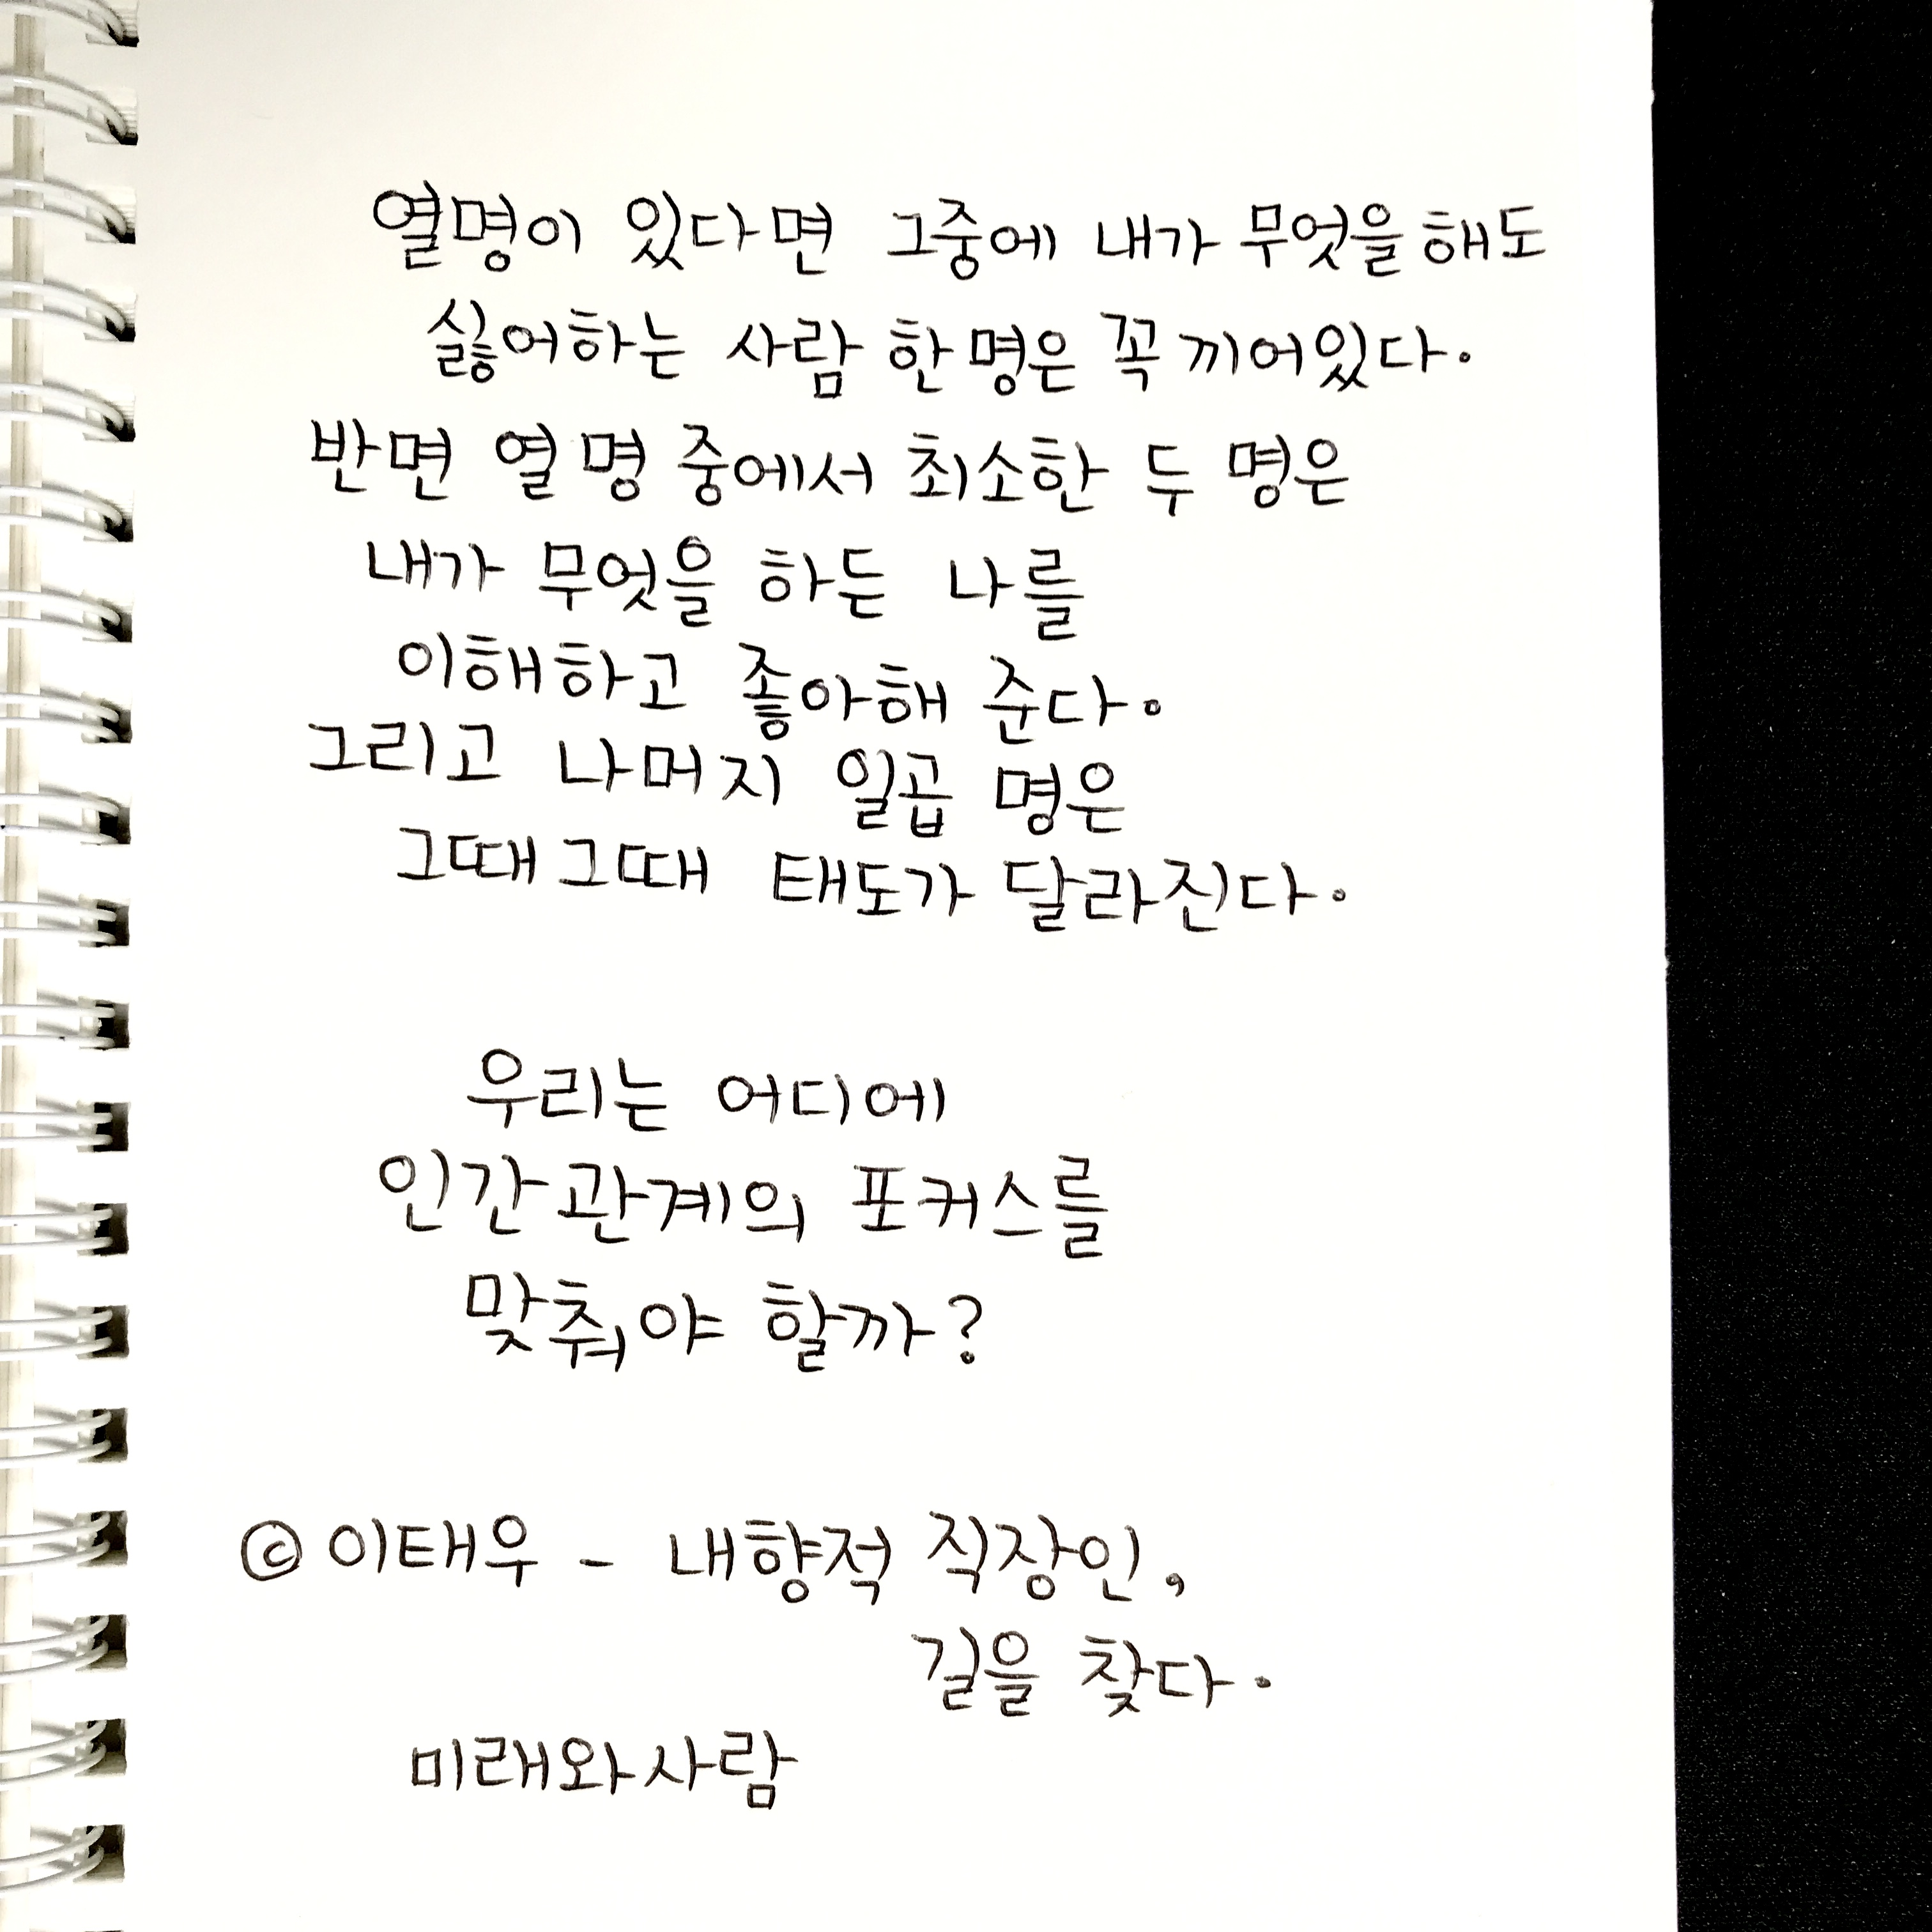 열명이 있다면 그중에 내가 무엇을 해도
싫어하는 사람 한 명은 꼭 끼어있다.
반면 열 명 중에서 최소한 두 명은
내가 무엇을 하든 나를
이해하고 좋아해 준다.
그리고 나머지 일곱 명은
그때그때 태도가 달라진다.
우리는 어디에
인간관계의 포커스를
맞춰야 할까?
© 이태우 - 내향적 직장인,
길을 찾다.
미래와사람